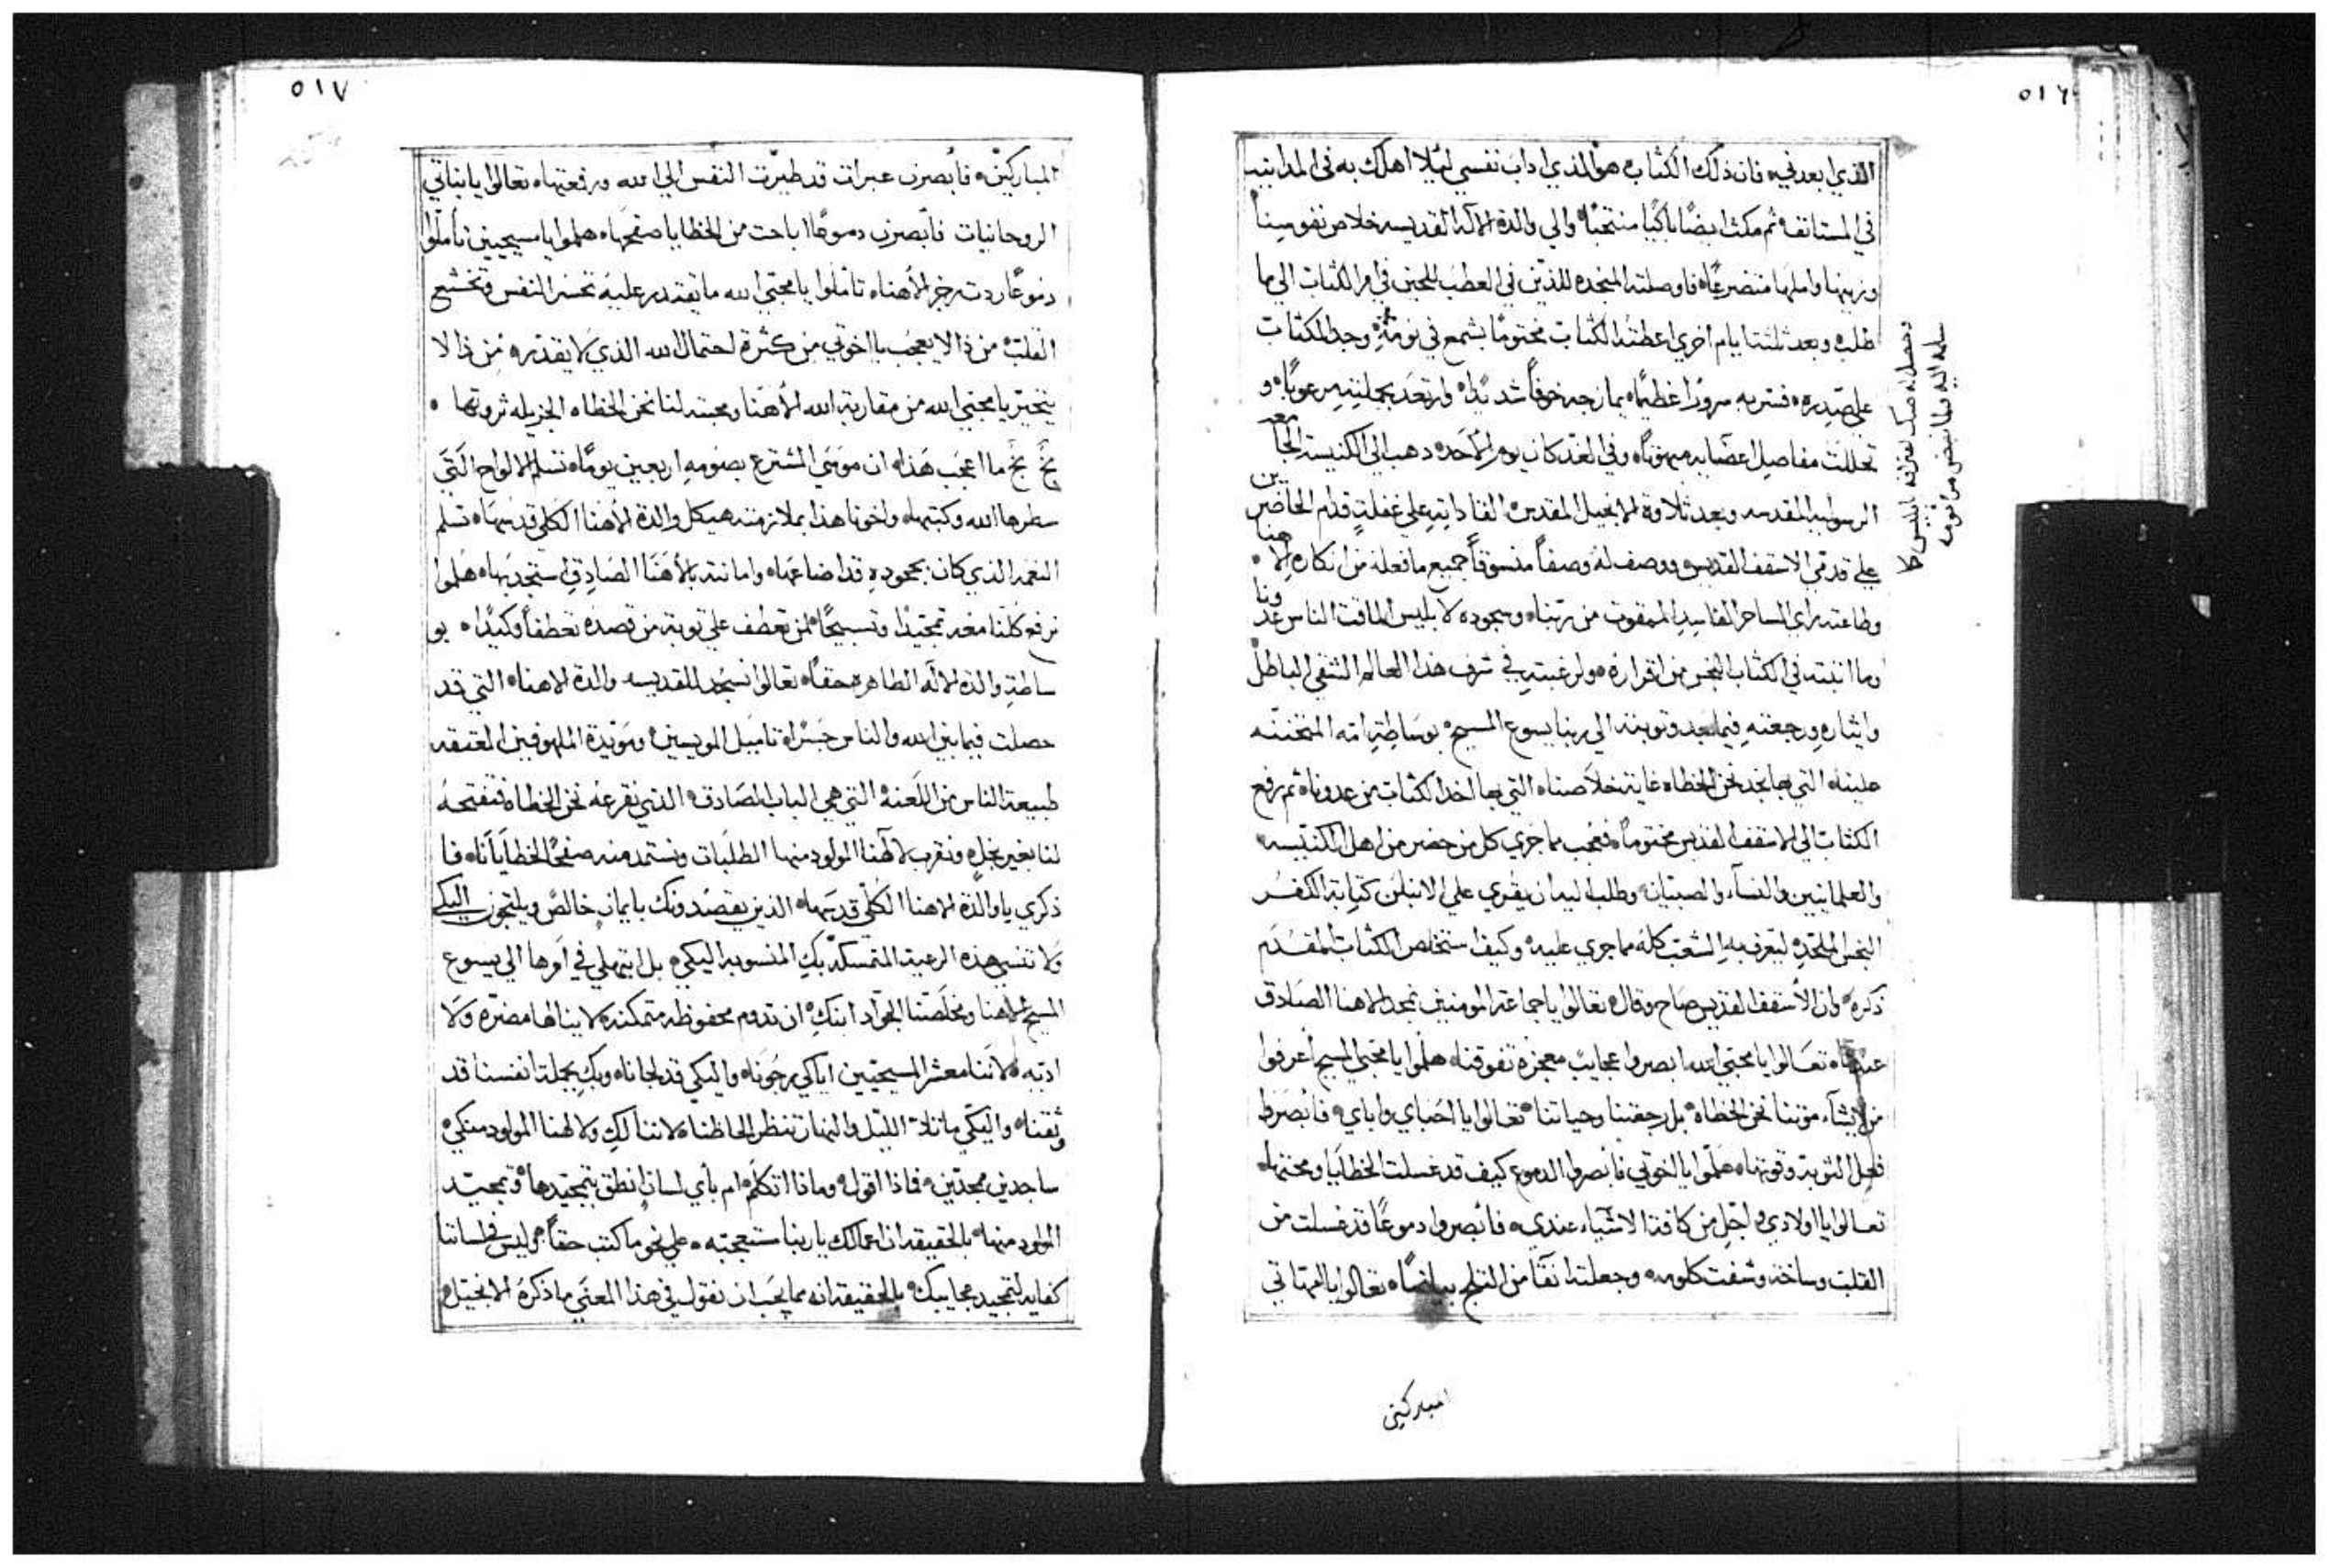 ٥١٦
الذي ابعدفيه فان ذلك الكتاب هو الذي اداب نفسي ليلا اهلك به في المداينه
في المستانفه ثم مكث ايضًا باكيًا منتحبًا والي والدة الاله القديسه خلاص نفوسنا
وزينها واملها متضرعًا فاوصلته المنجده للذين في العطب للحين في امر الكتاب الي ما
طلبه وبعد ثلثتا يام اخري اعطته الكتاب مختومًا بشمع في نومه وجد الكتاب
علي صدره فسر به سرورًا عظيمًا مازجه خوفًا شديدًا وارتعد بجملته مرعوبًا و
تحللت مفاصل اعضايه مبهوتًا وفي الغد كان يوم الاحد ذهب الي الكنيسة الجامعه
الرسوليه المقدسه وبعد تلاوة الانجيل المقدس القا ذاته علي غفلة قدام الحاضرين
علي قدمي الاسقف القديس ووصف له وصفًا منسوقًا جميع ما فعله من انكاره لالاهنا
وطاعته راي الساحر الفاسد الممقوت من ربنا وسجوده لابليس الماقت الناس عدونا
وما اثبته في الكتاب النجس من اقراره ولرغبته في شرف هذا العالم الشقي الباطل
وايثاره ورجعته فيما بعد وتوبته الي ربنا يسوع المسيح بوساطة امه المتحننه
علينا التي بها نجد نحن الخطاه غاية خلاصنا التي بها اخذ الكتاب من عدونا ثم رفع
الكتاب الي الاسقف القديس مختومًا فعجب مما جري كل من حضر من اهل الكنيسه
والعلمانيين والنسآء والصبيان وطلب اليه ان يقري علي الانبلن كتابة الكفر
النجس الملحد ليعرف به الشعب كله مما جري عليه وكيف استخلص الكتاب المقدم
ذكره وان الاسقف القديس صاح وقال تعالوا يا جماعة المومنين نمجد الاهنا الصادق
تعالوا يا محبي الله ابصروا عجايب معجزة تفوقنا هلموا يا محبي المسيح اعرفوا
من لا يشآء موتنا نحن الخطاه بل رجعتنا وحياتنا تعالوا يا احباي واباي فابصروا
فعل التوبة وقوتها هلموا يا اخوتي فابصروا الدموع كيف قد غسلت الخطايا ومحتها
تعالوا يا اولادي واجل من كافة الاشياء عندي فابصروا دموعًا قد غسلت من
القلب وساخته وشفت كلومه وجعلته انقا من الثلج بياضًا تعالوا يا امهاتي
المباركين
وحصل له صك اعترافه بابليس حلا
سلمه اليه فلما نهض من نومه
٥١٧
المباركين فابصرن عبرات قد طيرت النفس الي الله ورفعتها تعالوا يا بناتي
الروحانيات فابصرن دموعًا اباحت من الخطايا صفحها هلموا يا مسيحيين تاملوا
دموعًا ردت رجز الاهنا تاملوا يا محبي الله ما تقتدر عليه تحسر النفس وتخشع
القلب من ذا لا يعجب يا اخوتي من كثرة احتمال الله الذي لا يقدر من ذا لا
يتحير يا محبي الله من مقاربة الله الاهنا ومحبته لنا نحن الخطاه الجزيله ثروتها
بخٍ بخٍ ما اعجب هذا ان موسي المشترع بصومه اربعين يومًا تسلم الالواح التي
سطرها الله وكتبها واخونا هذا بملازمته هيكل والدة الاهنا الكلي قدسها تسلم
النعمه الذي كان بجحوده قد اضاعها وامانته بالاهنا الصادق استجدها هلموا
نرفع كلنا معه تمجيدًا وتسبيحًا لمن تعطف علي توبة من قصده تعطفًا وكيدًا بو
ساطة والدة الاله الطاهره حقًا تعالوا نسجد للقديسه والدة الاهنا التي قد
حصلت فيما بين الله والناس جسرًا تاميل المويسين ومويدة الملهوفين المعتقه
طبيعة الناس من اللعنه التي هي الباب الصادق الذي نقرعه نحن الخطاه فتفتحه
لنا بغير بخل ونقرب لالهنا المولود منها الطلبات ونستمد منه صفح الخطايانا فا
ذكري يا والدة الاهنا الكلي قدسها الذين يقصدونك بايمان خالص ويلتجون اليكي
ولا تنسي هذه الرعيه المتمسكه بكِ المنسوبه اليكي بل ابتهلي في امرها الي يسوع
المسيح الاهنا ومخلصنا الجواد ابنكِ ان تدوم محفوظه متمكنه لا ينالها مضره ولا
اذيه لاننا معشر المسيحيين اياكي رجونا واليكي قد لجانا وبكِ بجملة انفسنا قد
وثقنا واليكي ما تلات الليل والنهار تنظر الحاظنا لاننا لكِ ولالهنا المولود منكي
ساجدين مجدين فماذا اقول وماذا اتكلم ام باي لسان انطق بتمجيدها وتمجيد
المولود منها بالحقيقه ان اعمالك يا ربنا مستعجبه علي نحو ما كتب حقًا وليس في لساننا
كفايه لتمجيد عجايبك بالحقيقه انه مما يجب ان نقول في هذا المعني ما ذكره الانجيل